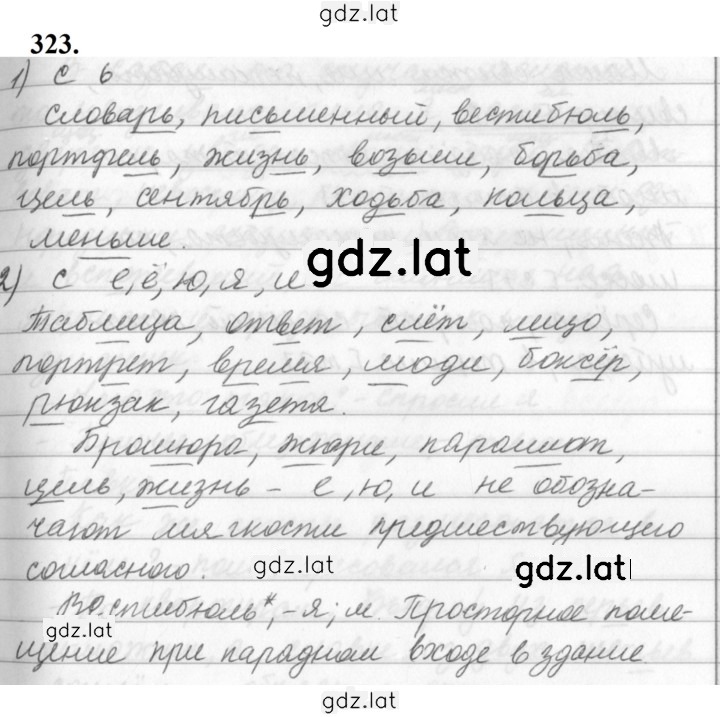 gdz.lat
323.
1) с ь
словарь, письменный, вестибюль,
портфель, жизнь, возьми, борьба,
цель, сентябрь, ходьба, кольца,
меньше.
gdz.lat
2) с е, ё, ю, я, и
Таблица, ответ, слёт, лицо,
портрет, время, люди, боксёр,
рюкзак, газета.
Брошюра, жюри, парашют,
цель, жизнь – е, ю, и не обозна-
чают мягкости предшествующего
согласного.
gdz.lat
gdz.lat
Вестибюль*, -я; м. Просторное поме-
gdz.lat
щение при парадном входе в здание.
gdz.lat